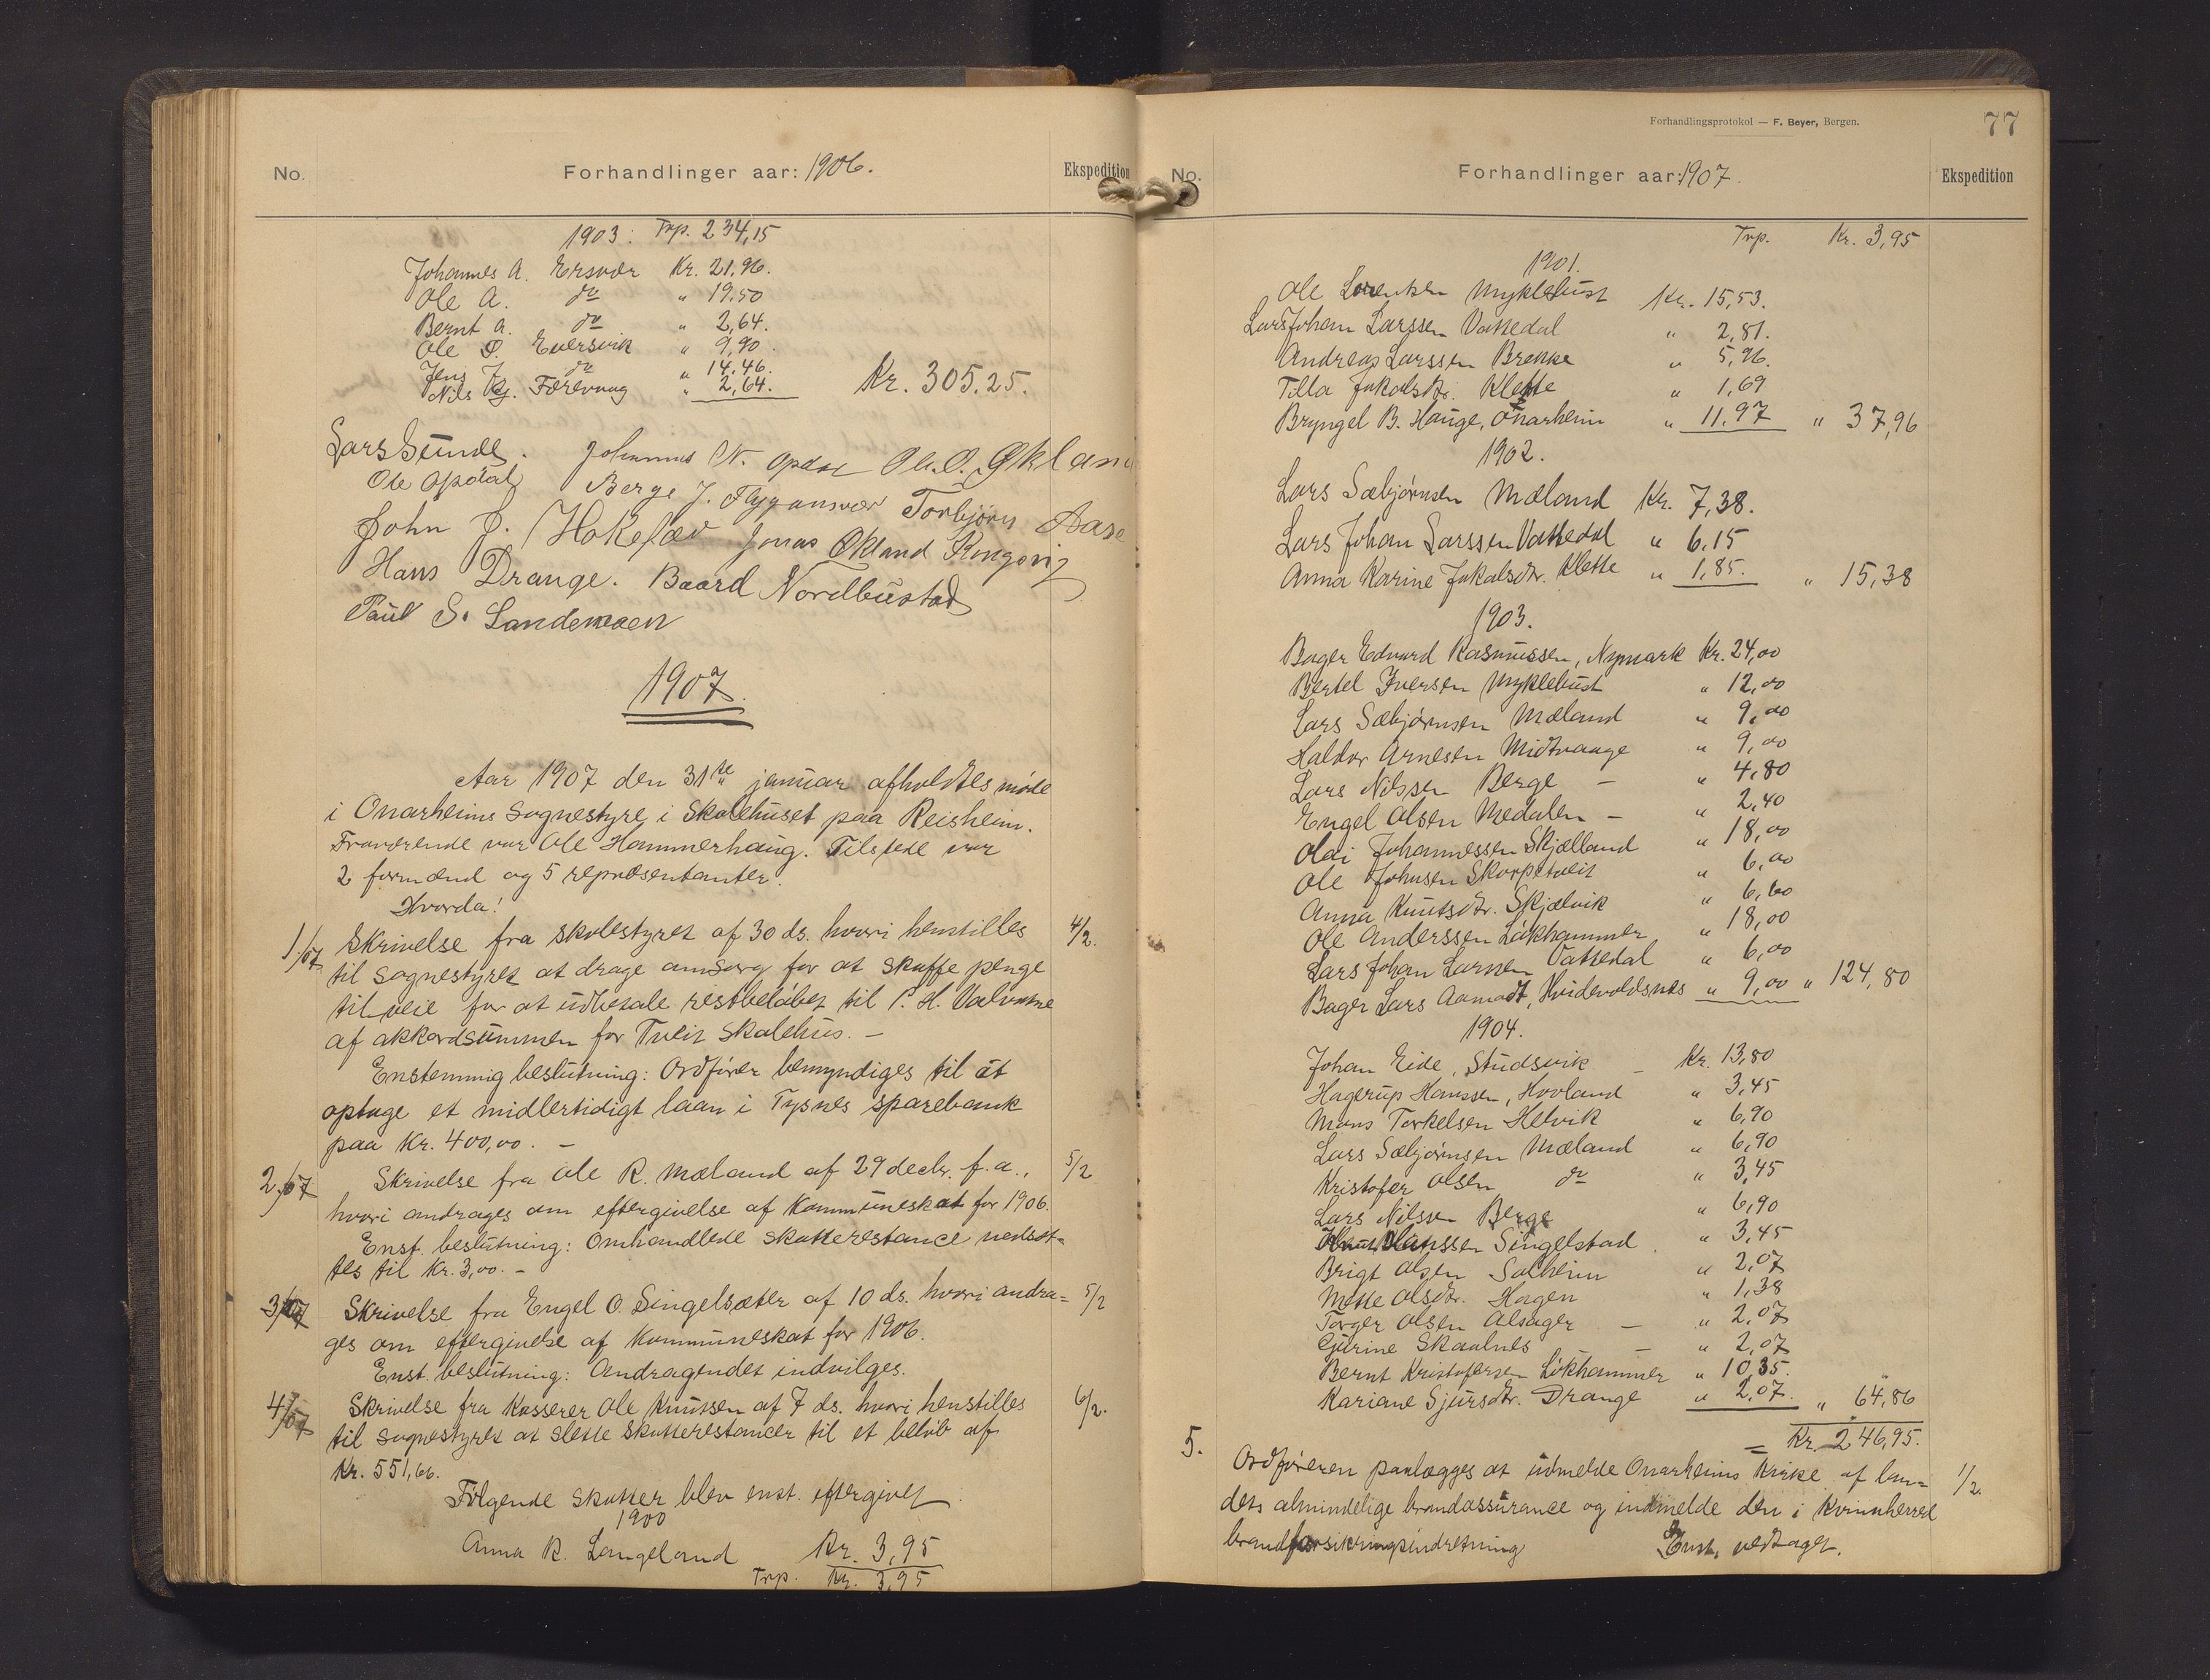 No. Forhandlinger aar: 1906. Ekspedition
1903: Trp. 234,15
Johannes A. Ersvær Kr. 21,96.
Ole A. do " 19.50
Bernt A. do " 2,64.
Ole Eversvik " 9,90.
Jens do " 14.46.
Nils Færevaag " 2,64. Kr. 305.25.
Lars Sunde. Johannes N. Opdal Ole O. Økland
Ole Opdal Berge J. Flygansvær Torbjørn Aase
John Hokeflæd Jonas Økland Kongsvig
Hans Drange. Baard Nordbustad
Paul S. Landemoen
1907.
Aar 1907 den 31te januar afholdtes møde
i Onarheims sognestyre i Skolehuset paa Reisheim.
Fraværende var Ole Hammerhaug. Tilstede var
2 formænd og 5 repræsentanter.
Hvorda!
1/07 Skrivelse fra skolestyret af 30 ds. hvori henstilles 4/2.
til sognestyret at drage omsorg for at skaffe penge
til veie for at udbetale restbeløbet til P. H. Valvatne
af akkordsummen for Tveit Skolehus. –
Enstemmig beslutning: Ordfører bemyndiges til at
optage et midlertidigt laan i Tysnes sparebank
paa Kr. 400,00. –
2/07 Skrivelse fra Ole R. Mæland af 29 decbr. f.a., 5/2
hvori andrages om eftergivelse af Kommuneskat for 1906.
Enst. beslutning: Omhandlede skatterestance nedsæt=
tes til Kr. 3,00. –
3/07 Skrivelse fra Engel O. Singelsæter af 10 ds. hvori andra= 5/2
ges om eftergivelse af Kommuneskat for 1906.
Enst. beslutning: Andragendet indvilges.
4/07 Skrivelse fra Kasserer Ole Knutsen af 7 ds. hvori henstilles 6/2.
til sognestyret at slette skatterestancer til et beløb af
Kr. 551,66.
Følgende skatter blev enst. eftergivet
1900
Anna R. Langeland Kr. 3,95
Trp. Kr. 3,95
Forhandlingsprotokol — F. Beyer, Bergen. 77
No. Forhandlinger aar: 1907. Ekspedition
Trp. Kr. 3,95
1901.
Ole Lorentsen Myklebust Kr. 15,53.
Lars Johan Larssen Vattedal " 2,81.
Andreas Larssen Brekke " 5,96.
Tilla Jakobsdtr. Klette " 1,69
Bryngel B. Hauge, Onarheim " 11.97 " 37,96
1902.
Lars Sæbjørnsen Mæland Kr. 7,38.
Lars Johan Larssen Vattedal " 6.15
Anna Karine Jakobsdtr. Klette " 1,85. " 15,38
1903.
Bager Edvard Rasmussen, Nymark Kr. 24,00
Bertel Iversen Myklebust " 12,00
Lars Sæbjørnsen Mæland " 9,00
Haldor Arnesen Midtvaage " 9,00
Lars Nilssen Berge – " 4,80
Engel Olsen Medalen – " 2,40
Oldi Johannessen Skjælland " 18,00
Ole Johnsen Skorpetveit " 6,00
Anna Knutsdtr. Skjælvik " 6,60
Ole Anderssen Løkhammer " 18,00
Lars Johan Larssen Vattedal " 6,00
Bager Lars Aamodt, Hvidevoldsnes " 9,00 " 124,80
1904.
Johan Eide, Studsvik – Kr. 13,80
Hagerup Hanssen, Hovland " 3,45
Mons Torkelsen Helvik " 6,90
Lars Sæbjørnsen Mæland " 6,90
Kristofer Olsen do " 3,45
Lars Nilssen Berge " 6,90
Hanssen Singelstad " 3,45
Brigt Olsen Solheim " 2,07
Mette Olsdtr. Hagen " 1,38
Torger Olsen Alsager – " 2,07
Gurine Skaalnes – " 2,07
Bernt Kristofersen Løkhammer " 10,35.
Kariane Sjursdtr. Drange " 2,07. " 64,86
= Kr. 246,95.
5. Ordføreren paalægges at udmelde Onarheims Kirke af lan= 1/2.
dets almindelige brandassurance og indmelde den i Kvinnherred
brandforsikringsindretning Enst. vedtaget.